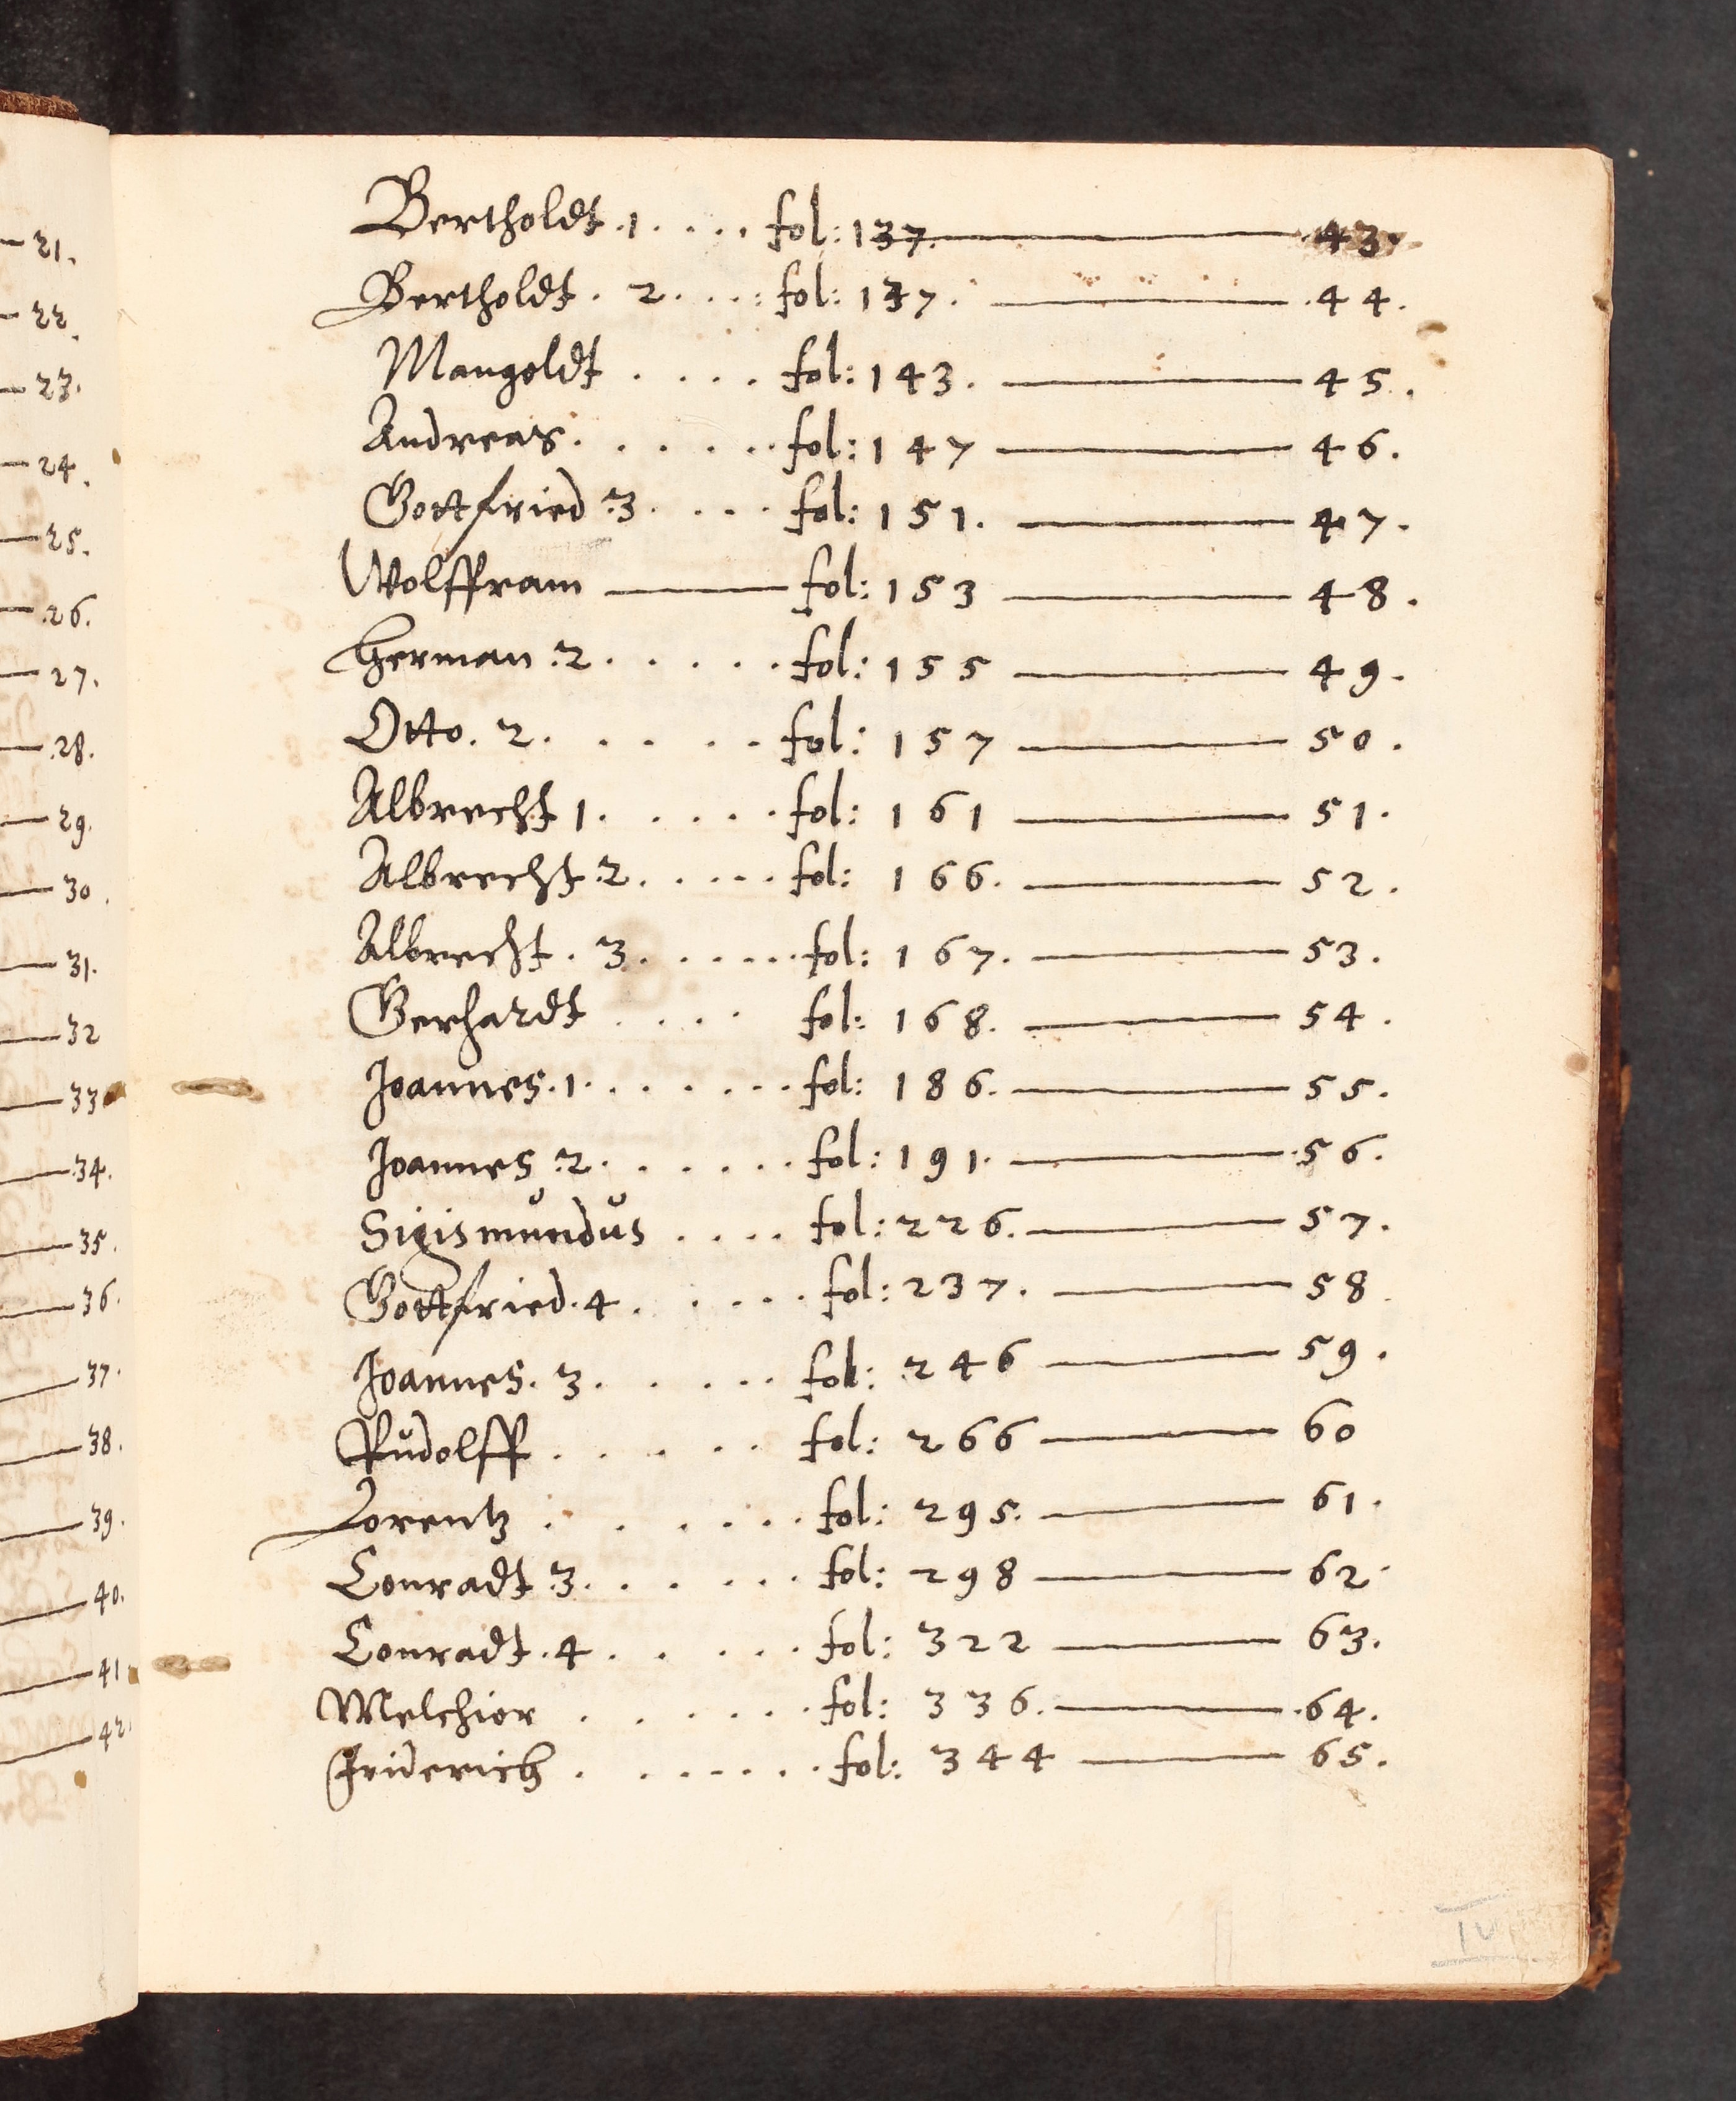 21.
22.
23.
24.
25.
26.
27.
28.
29.
30.
31.
32
33
34.
35.
36.
37.
38.
39.
40.
41.
42.
Bertholdt .1. . . . . fol: 137. 43.
Bertholdt . 2. . . . : fol: 137. 44.
Mangoldt . . . . fol: 143. 45.
Andreas. . . . . . fol: 147 46.
Gottfried .3. . . . fol: 151. 47.
Wolffram fol: 153 48.
Herman .2. . . . . . fol: 155 49.
Otto. 2. . . . . fol: 157 50.
Albrecht 1. . . . . fol: 161 51.
Albrecht .2. . . . . fol: 166. 52.
Albrecht . 3. . . . . . fol: 167. 53.
Gerhardt . . . . fol: 168. 54.
Joannes .1. . . . . . . fol: 186. 55.
Joannes .2. . . . . . fol: 191. 56.
Sigismundus . . . . fol: 226. 57.
Gottfried .4. . . . . fol: 237. 58
Joannes. 3. . . . . fol: 246 59.
Rudolff . . . . . fol: 266 60
Lorentz . . . . . . fol: 295. 61.
Conradt .3. . . . . . fol: 298 62.
Conradt .4. . . . . fol: 322 63.
Melchior . . . . . . fol: 336. 64.
Friderich . . . . . . . fol: 344 65.